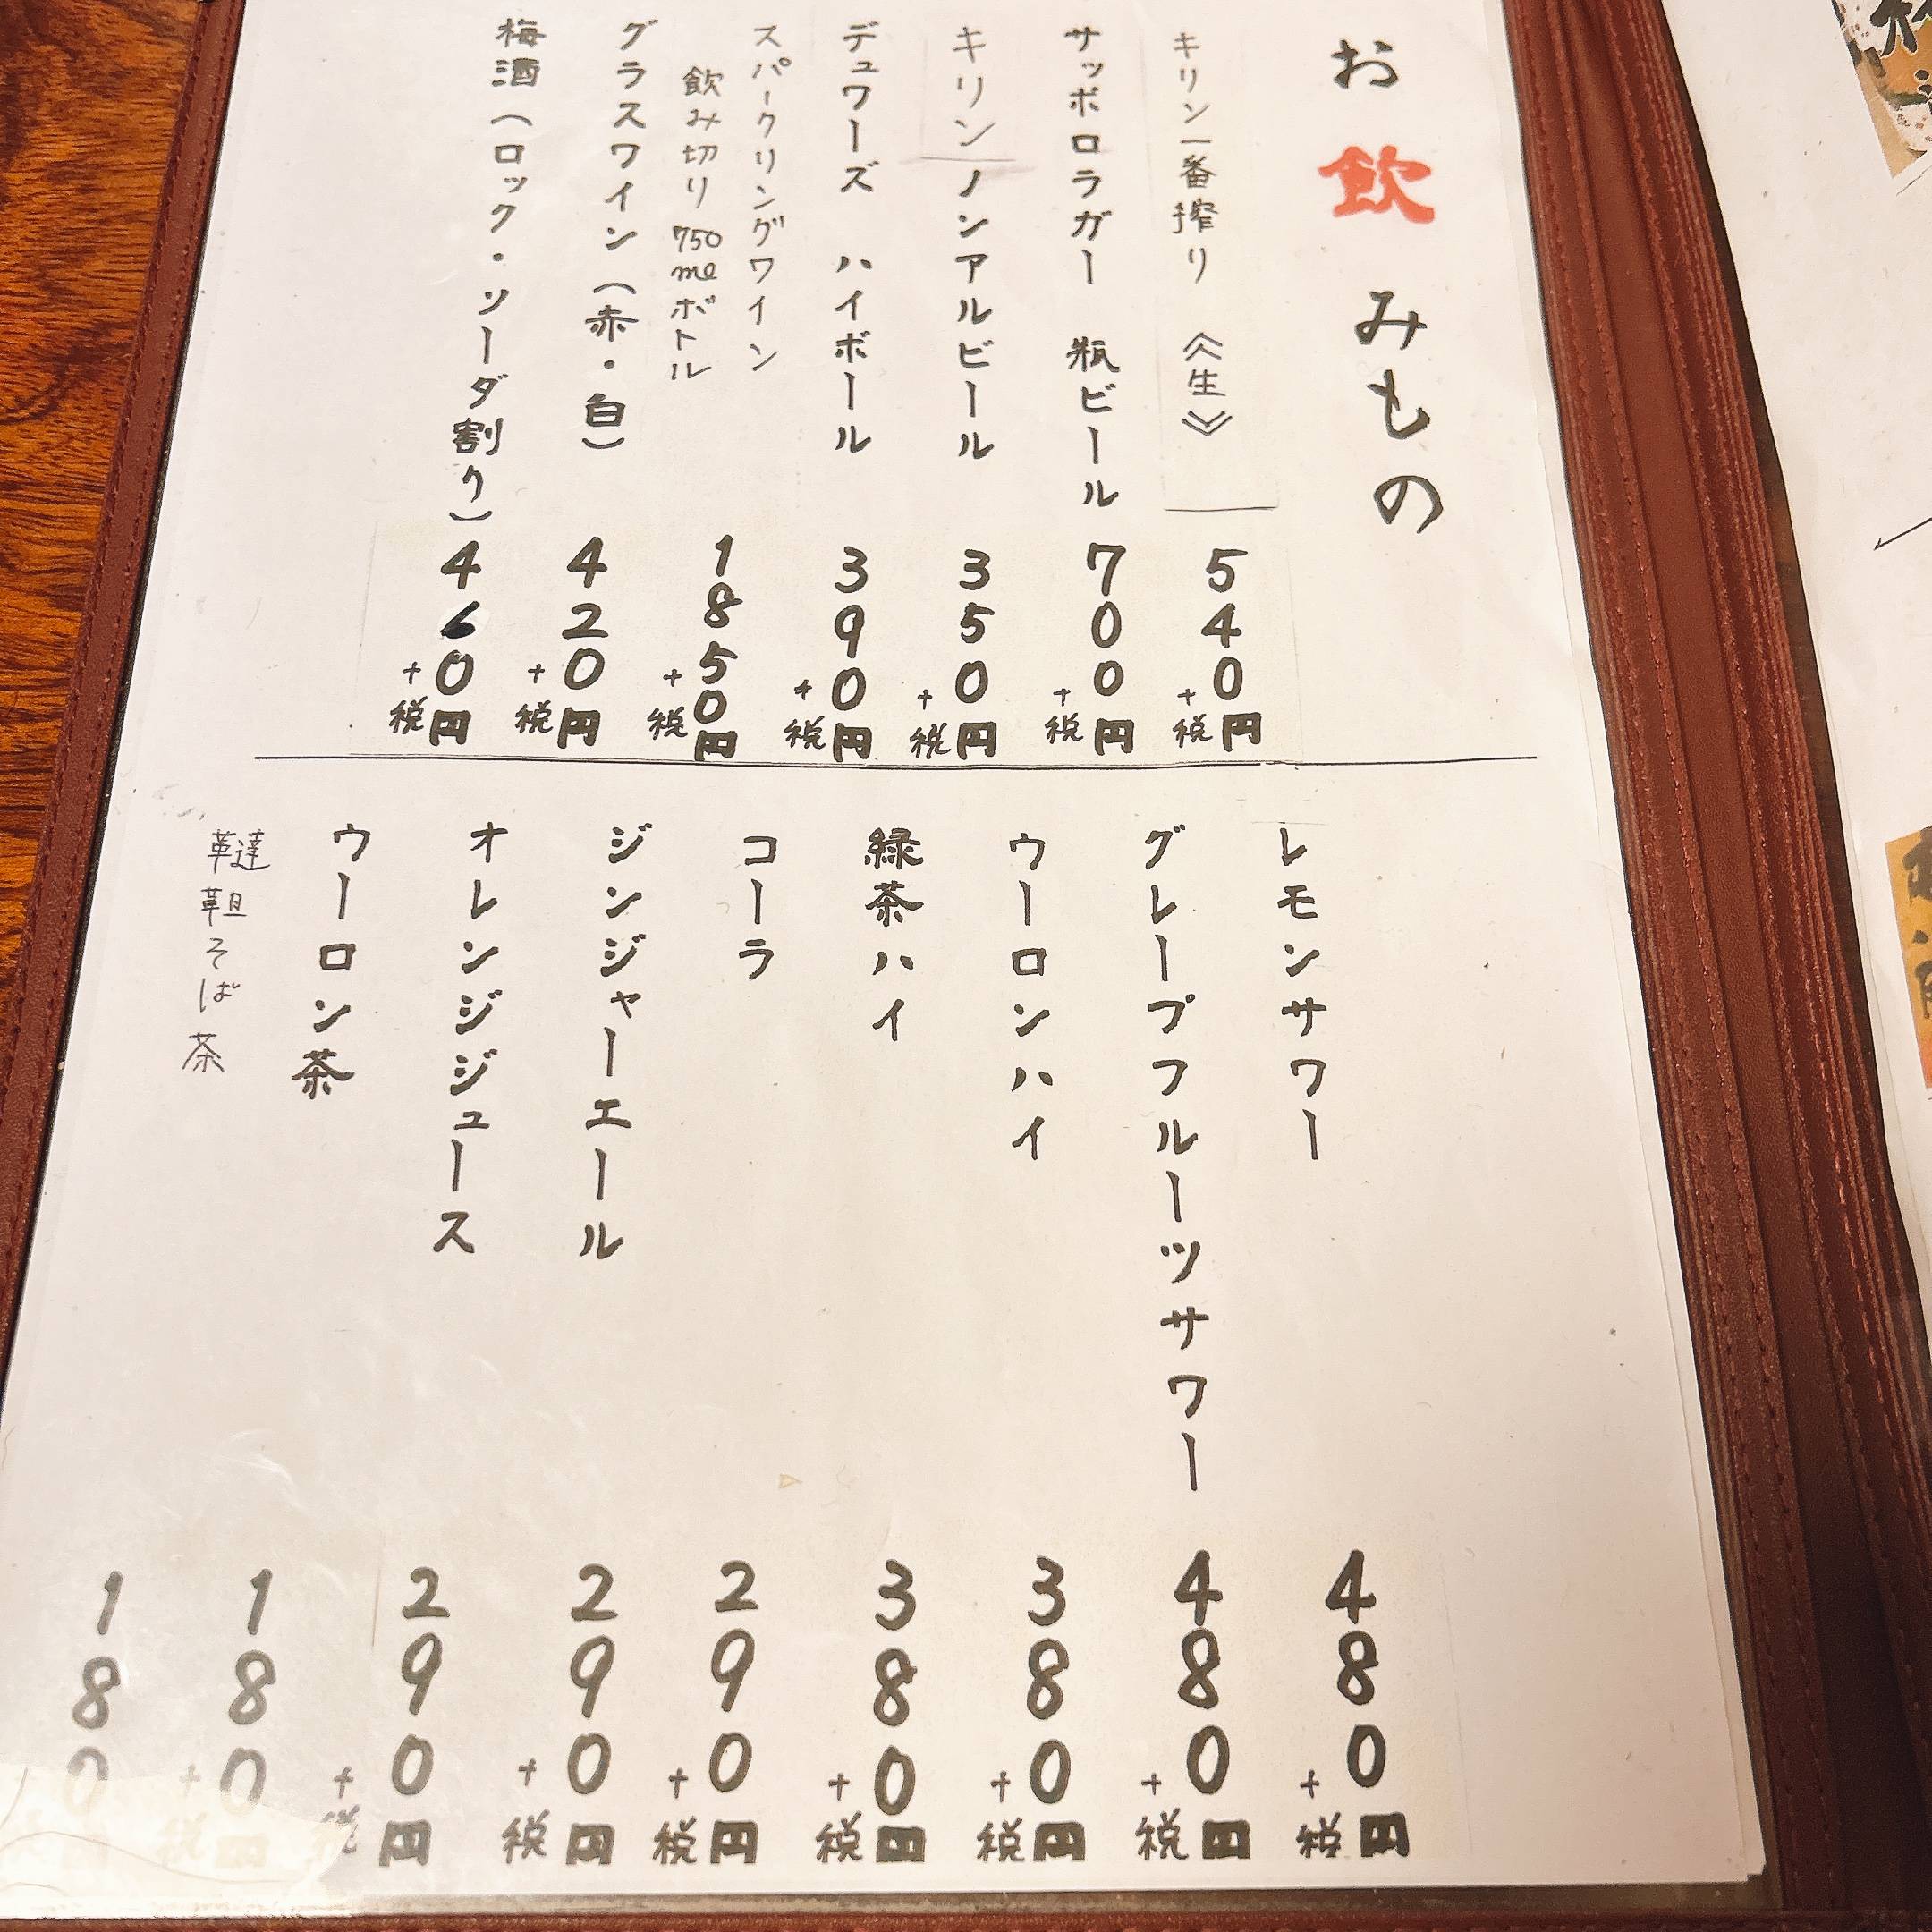 お飲みもの
キリン一番搾り 《生》 540円+税
サッポロラガー 瓶ビール 700円+税
キリンノンアルビール 350円+税
デュワーズ ハイボール 390円+税
スパークリングワイン
飲み切り750mlボトル 1850円+税
グラスワイン(赤・白) 420円+税
梅酒(ロック・ソーダ割り) 460円+税
レモンサワー 480円+税
グレープフルーツサワー 480円+税
ウーロンハイ 380円+税
緑茶ハイ 380円+税
コーラ 290円+税
ジンジャーエール 290円+税
オレンジジュース 290円+税
ウーロン茶 180円+税
韃靼そば茶 180